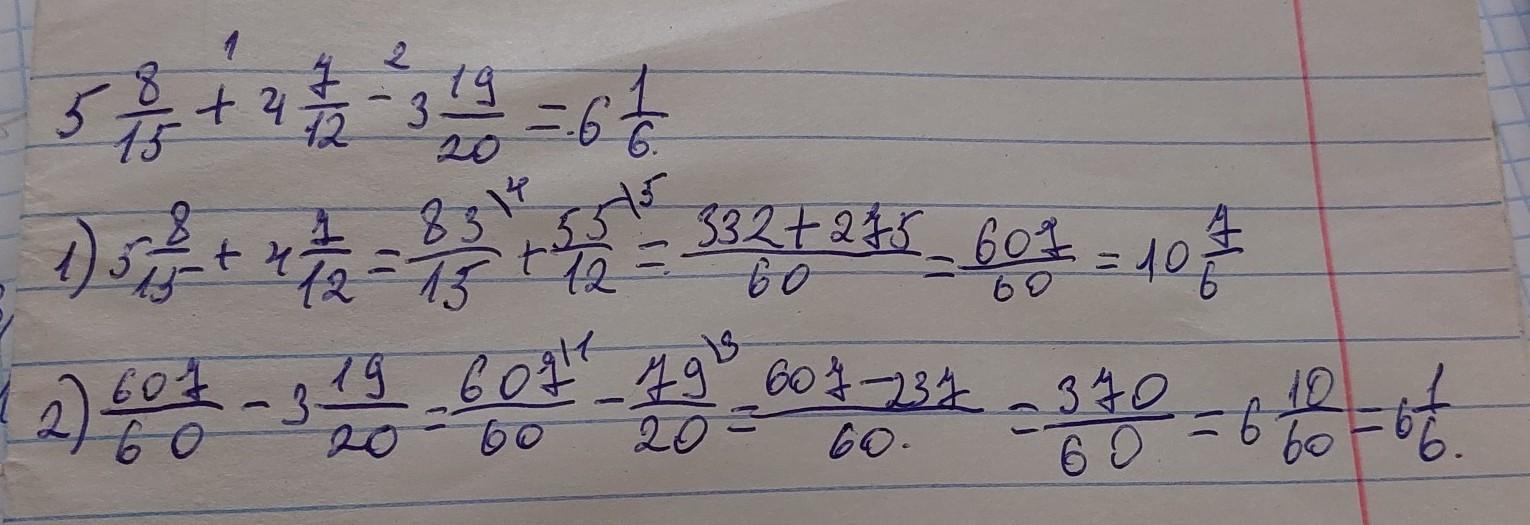 5 8/15 +¹ 4 7/12 -² 3 19/20 = 6 1/6.
1) 5 8/15 + 4 7/12 = 83\4/15 + 55\5/12 = 332+275/60 = 607/60 = 10 7/6
2) 607/60 - 3 19/20 = 607\1/60 - 79\3/20 = 607-237/60. = 370/60 = 6 10/60 = 6 1/6.